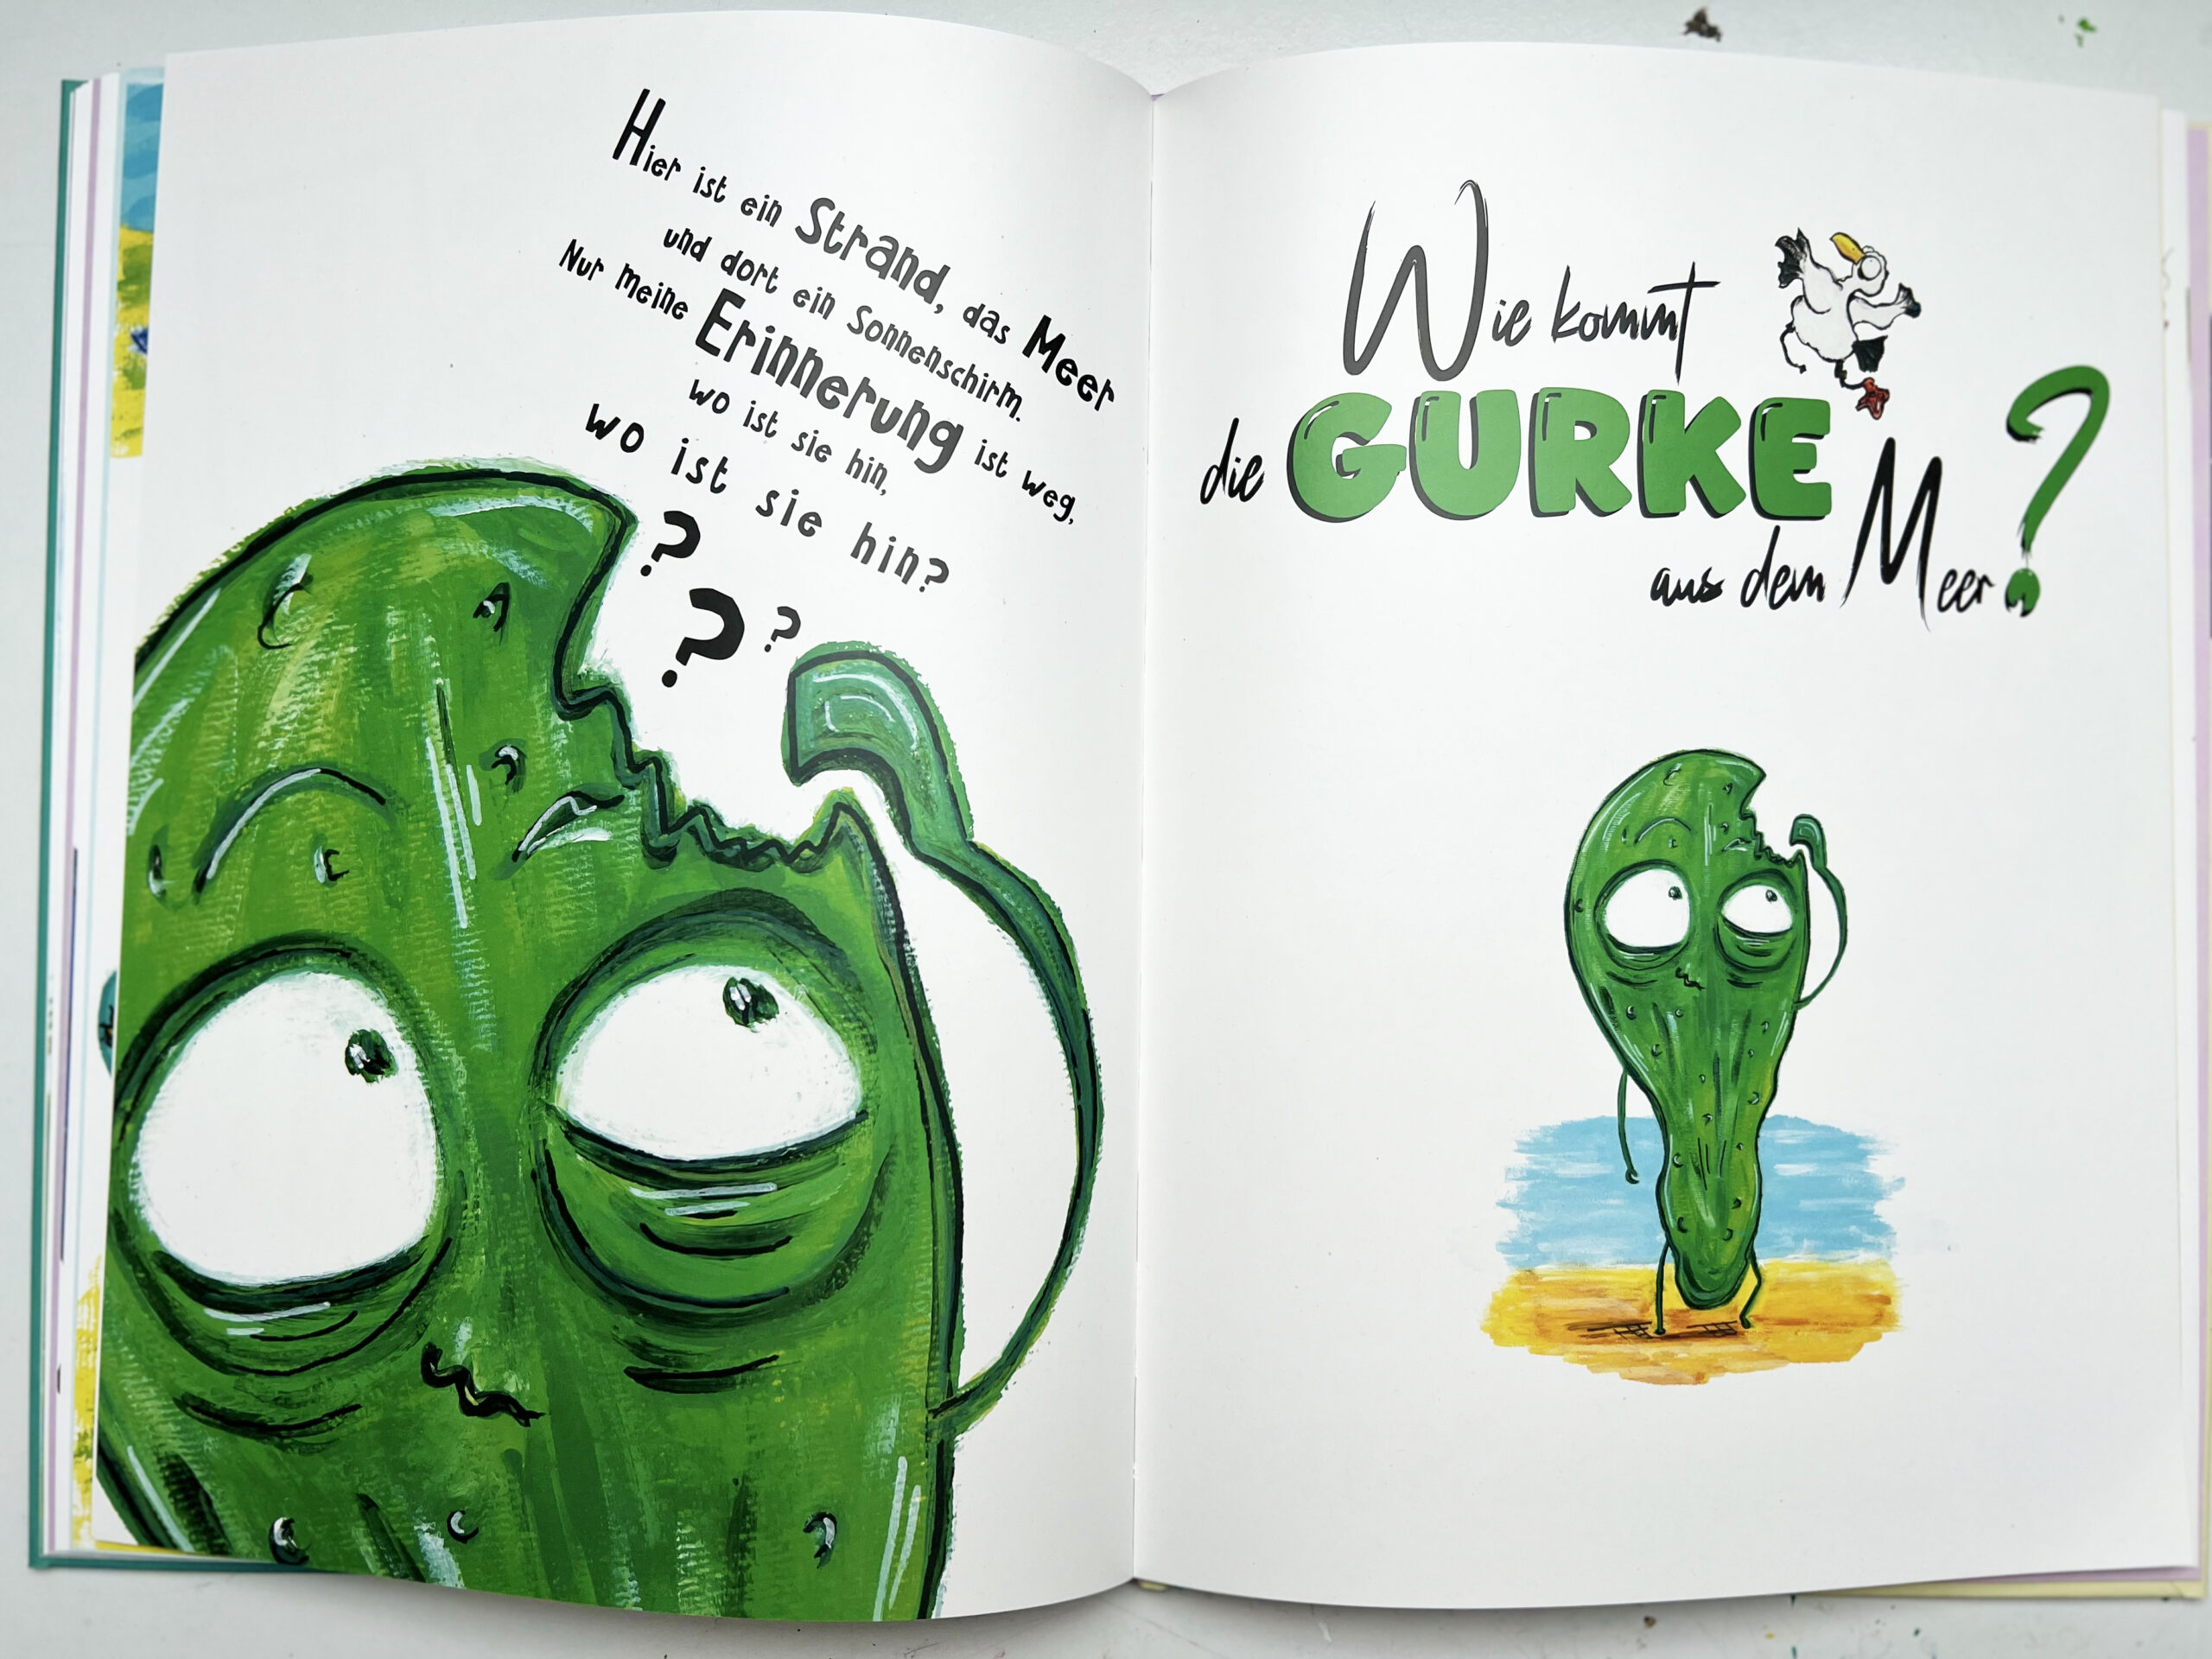 Hier ist ein Strand, das Meer
und dort ein Sonnenschirm.
Nur meine Erinnerung ist weg,
wo ist sie hin,
wo ist sie hin?
?
? ?
Wie kommt
die GURKE
aus dem Meer?